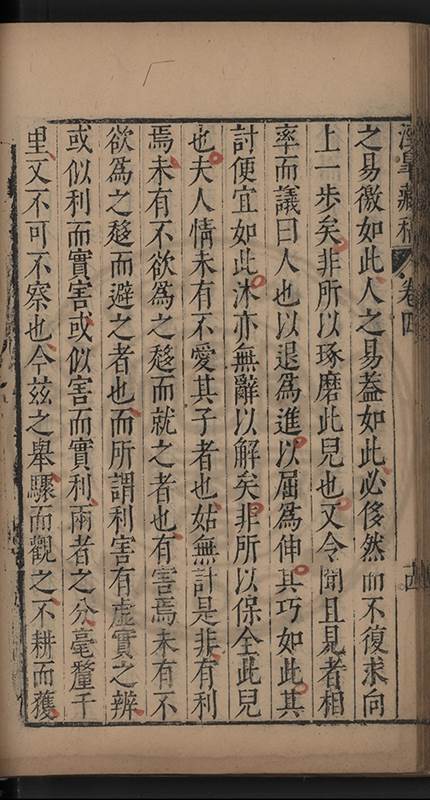 涇皐藏稿 卷四
之易徼如此人之易蓋如此必侈然而不復求向
上一步矣非所以琢磨此兒也又令聞且見者相
率而議曰人也以退爲進以屈爲伸其巧如此其
討便宜如此沐亦無辭以解矣非所以保全此兒
也夫人情未有不愛其子者也姑無計是非有利
焉未有不欲爲之趍而就之者也有害焉未有不
欲爲之趍而避之者也而所謂利害有虛實之辨
或似利而實害或似害而實利兩者之分毫釐千
里又不可不察也今兹之舉驟而觀之不耕而穫